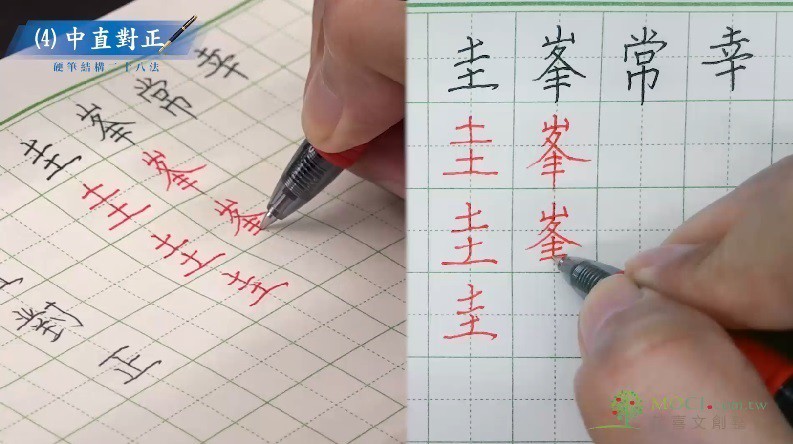 (4) 中直對正
硬筆結構二十八法
圭峯常幸
圭峯
圭峯
圭
對
正
圭峯常幸
圭峯
圭峯
圭